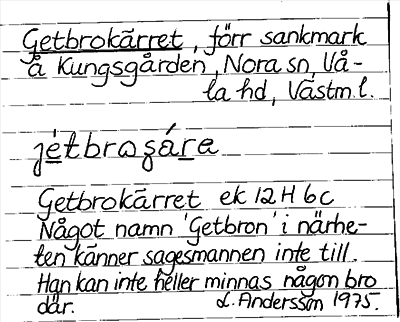 Getbrokärret, förr sankmark
å Kungsgården, Nora sn, Vå-
la hd, Västm.l.
jétbrosára
Getbrokärret ek 12 H 6c
Något namn 'Getbron' i närhe-
ten känner sagesmannen inte till.
Han kan inte heller minnas någon bro
där. L. Andersson 1975.